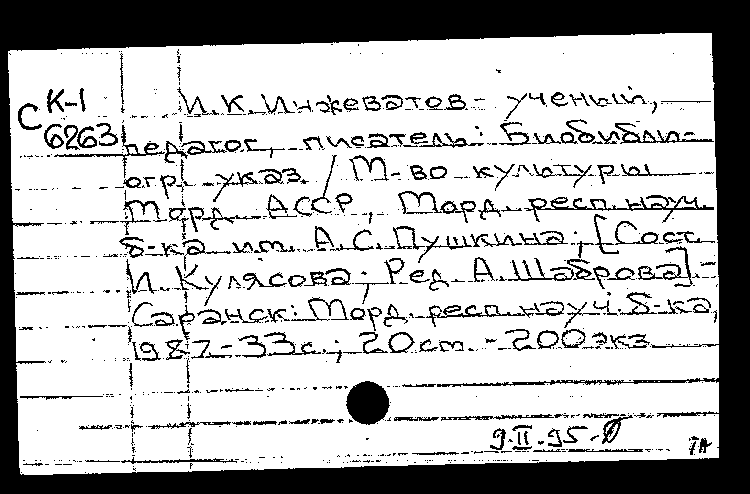 К-1
С 6263
И.К. Инжеватов - ученый,
педагог, писатель: Биобибли-
огр. указ. / М-во культуры
Морд. АССР, Морд. респ. науч.
б-ка им. А.С. Пушкина; [Сост.
И. Кулясова; Ред. А. Шаброва]. -
Саранск: Морд. респ. науч. б-ка,
1987. - 33 с.; 20 см. - 200 экз.
9.II.95